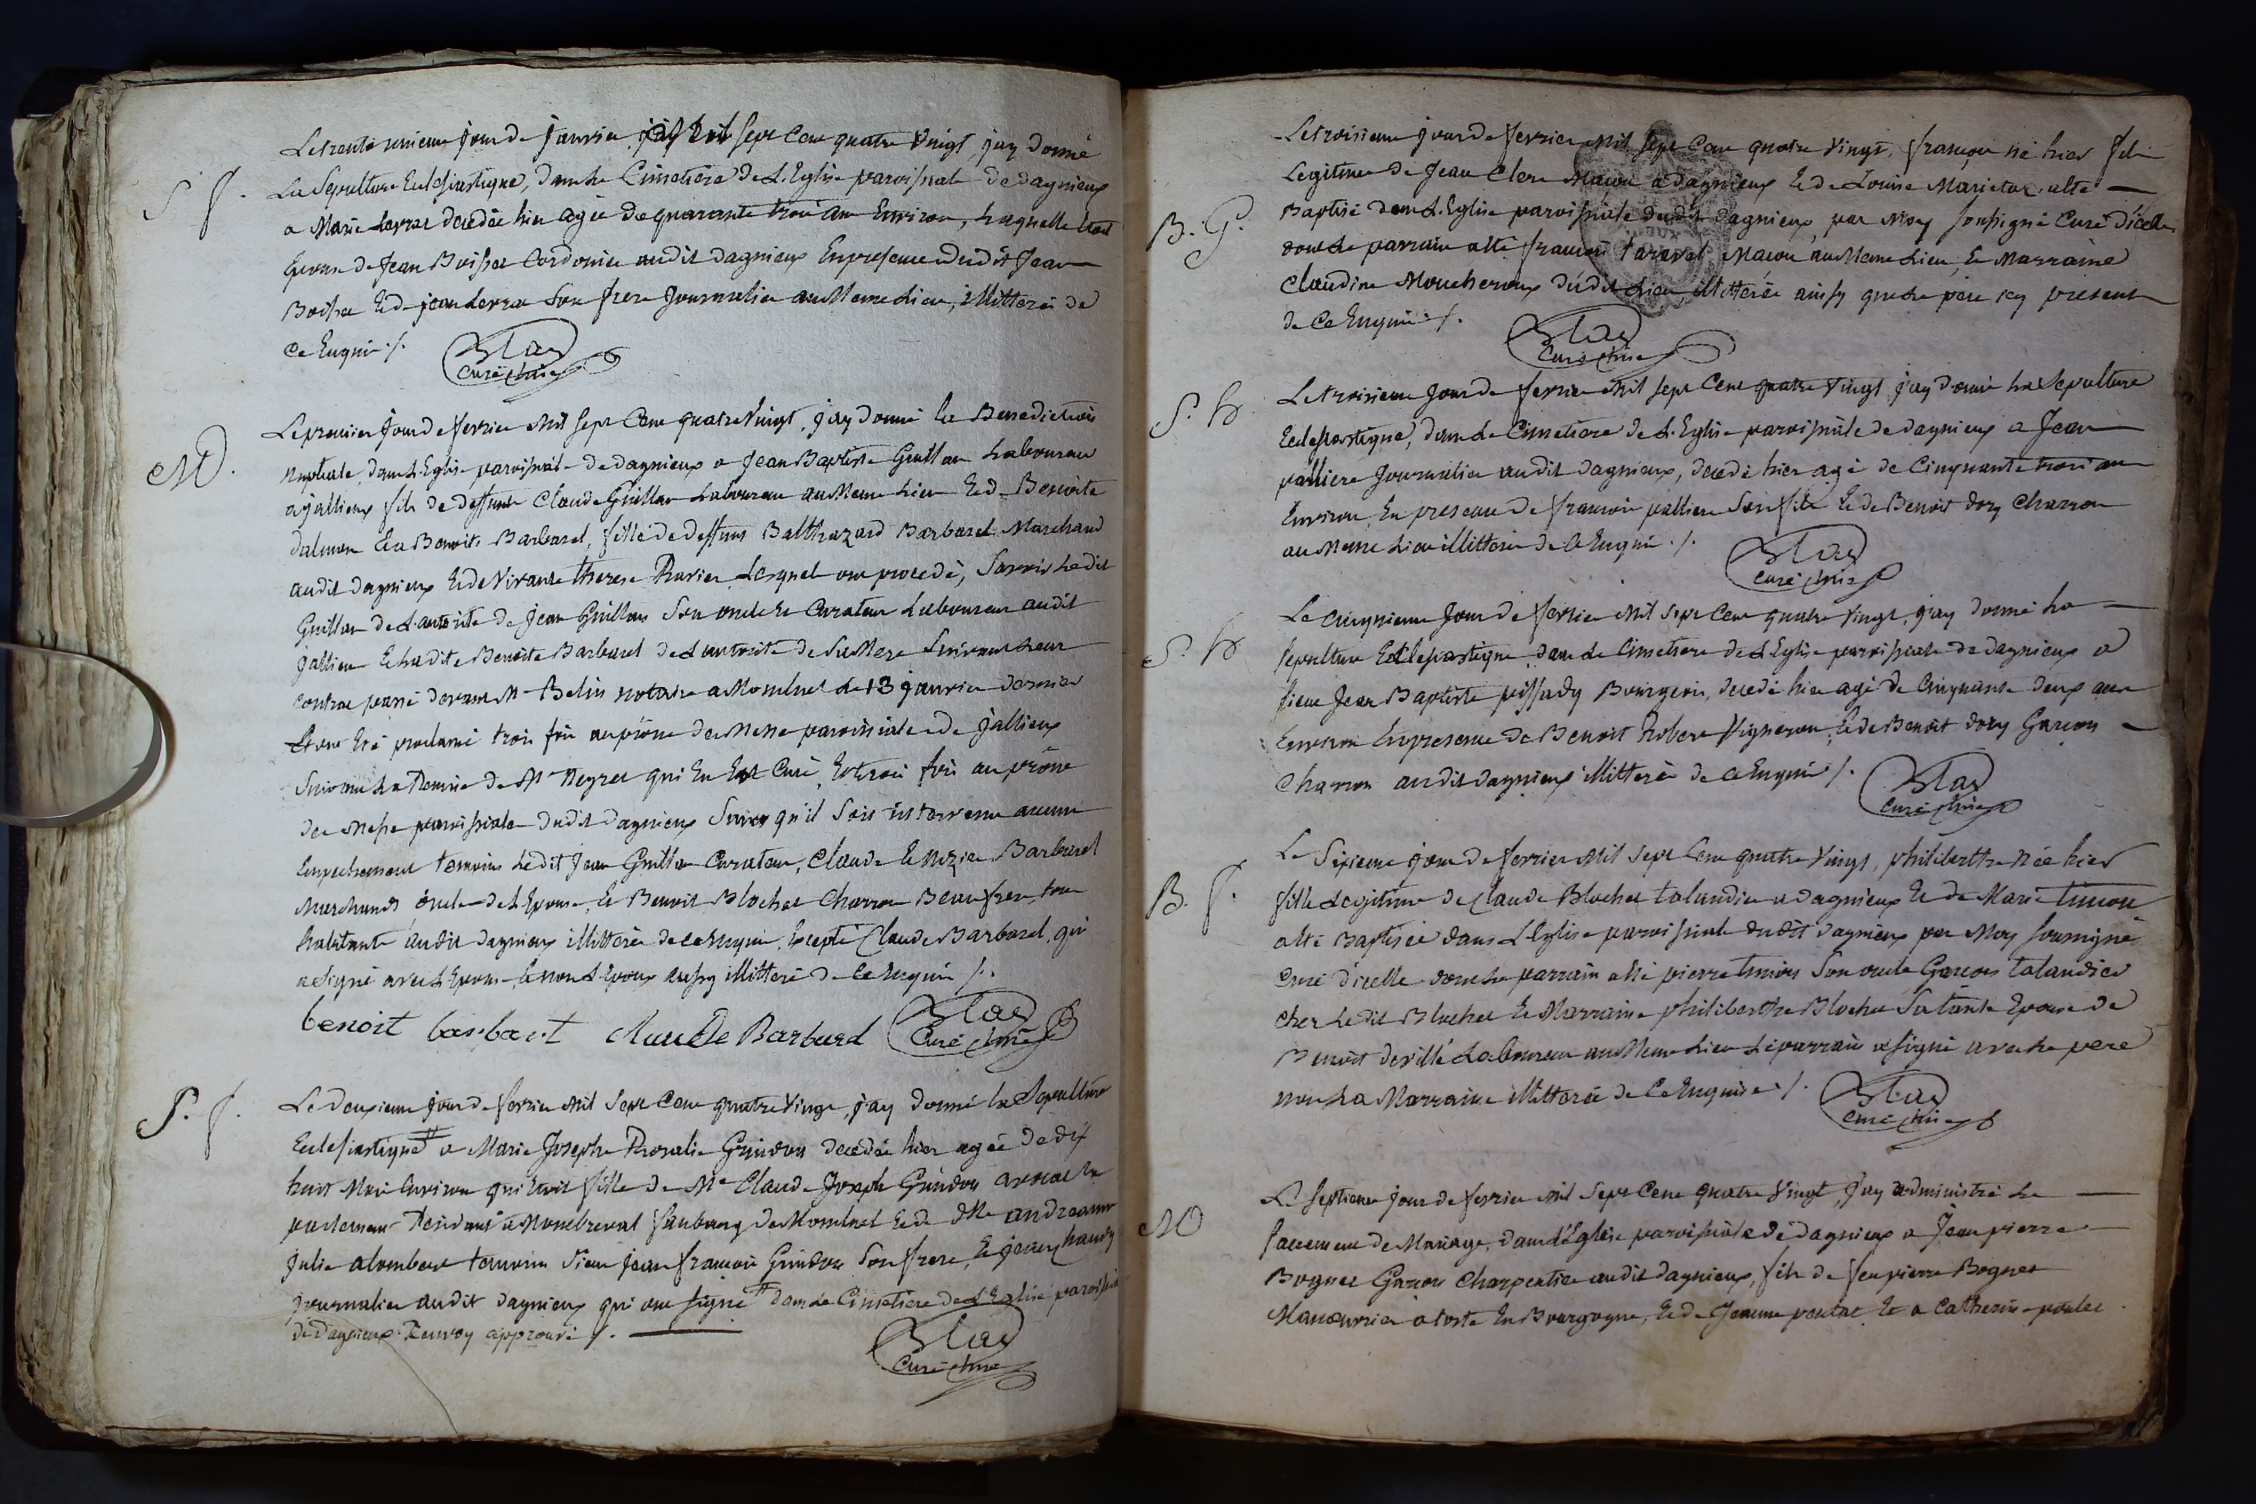 Le trente unieme jour de janvier mil sept Cent quatre Vingt j'ay donné
S. f. La Sepulture Eclesiastique, dans le Cimetiere de L'Eglise paroissiale de dagnieux
a Marie decedée hier agée de quarante trois ans Environ, laquelle Etoit
Epouse de Jean Boisset Cordonier audit dagnieux En presence dudit Jean
Boisset Et de jean son frere Journalier au Meme Lieu, illitterés de
Ce Enquis ./.
Curé
M. Le premier Jour de fevrier Mil sept Cent quatre Vingt, j'ay donné la Benediction
Nuptiale, dans L'Eglise paroissiale de dagnieux a Jean Baptiste Guillon Laboureur
a jallieux fils de deffunt Claude Guillon Laboureur au Meme Lieu Et de Benoite
Et a Benoite Barbaret, fille de deffunt Balthazard Barbaret Marchand
audit dagnieux Et de Vivante therese Lesquels ont procedé, Savoir Ledit
Guillon de L'autorité de Jean Guillon Son oncle Et Curateur Laboureur audit
jallieux Et Ladite Benoite Barbaret de L'autorité de Sa Mere Suivant Leur
Contrat passé devant Mr Belin notaire a Montluel Le 13 janvier dernier
Et ont Eté proclamé trois fois au prône de Messe paroissiale de Jallieux
Suivant La Remise de Mr Neyret qui En Est Curé, Et trois fois au prône
de Messe paroissiale dudit dagnieux Sans qu'il Soit intervenu aucun
Empechement temoins Ledit Jean Guillon Curateur, Claude Barbaret
Marchands oncle de L'Epouse, Et Benoit Blochet Charron Beaufrere tous
habitants audit dagnieux illitterés de ce Enquis, Excepté Claude Barbaret, qui
a Signé avec L'Epouse Et non L'Epoux aussy illitteré de Ce Enquis ./.
benoit barbaret Claude Barbaret
Curé
S. f. Le Deuxieme jour de fevrier Mil Sept Cent quatre Vingt, j'ay donné La Sepulture
Eclesiastique # a Marie Joseph Rosalie Grindon decedée hier agée de dix
huit Mois Environ qui Etoit fille de Mr Claude Joseph Grindon avocat En
parlement Residant a Montbreval faubourg de Montluel Et de dlle
Julie temoins Sieur Jean francois Grindon Son frere, Et
Journalier audit dagnieux qui ont Signé # dans Le Cimetiere de L'Eglise paroissiale
de Dagnieux Renvoy approuvé ./.
Curé
Le troisieme jour de fevrier Mil Sept Cent quatre Vingt, francois né hier fils
Legitime de Jean Clerc Macon a Dagnieux Et de Louise a Eté
B. G. Baptisé dans L'Eglise paroissiale dudit dagnieux, par Moy soussigné Curé d'icelle
dont Le parrain a Eté francois Macon au Meme Lieu, Et Marraine
Claudine Moucheroux dudit Lieu, illitterés ainsy que Le pere icy present
de Ce Enquis ./.
Curé
S. h. Le troisieme Jour de fevrier Mil Sept Cent quatre Vingt j'ay donné La Sepulture
Eclesiastique, dans Le Cimetiere de L'Eglise paroissiale de dagnieux a Jean
palliere Journalier audit dagnieux, decedé hier agé de Cinquante trois ans
Environ, En presence de francois palliere Son fils Et de Benoit dory Charron
au Meme Lieu illitterés de Ce Enquis ./.
Curé
Le Cinquieme Jour de fevrier Mil Sept Cent quatre Vingt, j'ay donné La
S. h. Sepulture Eclesiastique dans Le Cimetiere de L'Eglise paroissiale de dagnieux a
Sieur Jean Baptiste Bourgeois, decedé hier agé de Cinquante deux ans
Environ En presence de Benoit Robert Vigneron, Et de Benoit dory Garcon
Charron audit dagnieux illitterés de ce Enquis ./.
Curé
Le Sixieme jour de fevrier Mil Sept Cent quatre Vingt, philiberthe Née hier
B. f. fille Legitime de Claude Blochet talandier a dagnieux Et de Marie
a Eté Baptisée dans L'Eglise paroissiale dudit dagnieux par Moy Soussigné
Curé d'icelle dont Le parrain a Eté pierre Son oncle Garcon talandier
chez Ledit Blochet Et Marraine philiberthe Blochet Sa tante Epouse de
Benoit Laboureur au Meme Lieu Le parrain a Signé avec Le pere
non La Marraine illitterée de Ce Enquise ./.
Curé
Le Septieme jour de fevrier Mil Sept Cent quatre Vingt, j'ay administré Le
M Sacrement de Mariage, dans L'Eglise paroissiale de dagnieux a Jean pierre
Bognet Garcon Charpentier audit dagnieux, fils de feu pierre Bognet
Manoeuvrier En Bourgogne, Et de Jeanne Et a Catherine